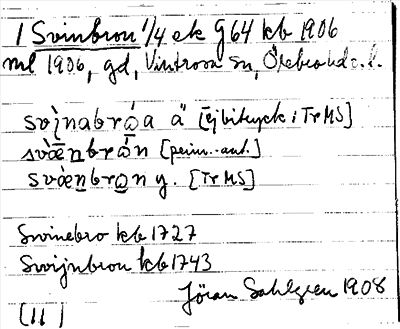 1 Svinbron 1/4 ek G64 kb 1906
ml 1906, gd, Vintrosa sn, Örebro hd
svi̯nabrǫ́a ä [ej bitryck i TrMS]
svæ̀nbrǫ̀n [prim.-ant.]
svænbrọn y. [TrMS]
Svinebro kb 1727
Svijnbron kb 1743
Jöran Sahlgren 1908
[11]